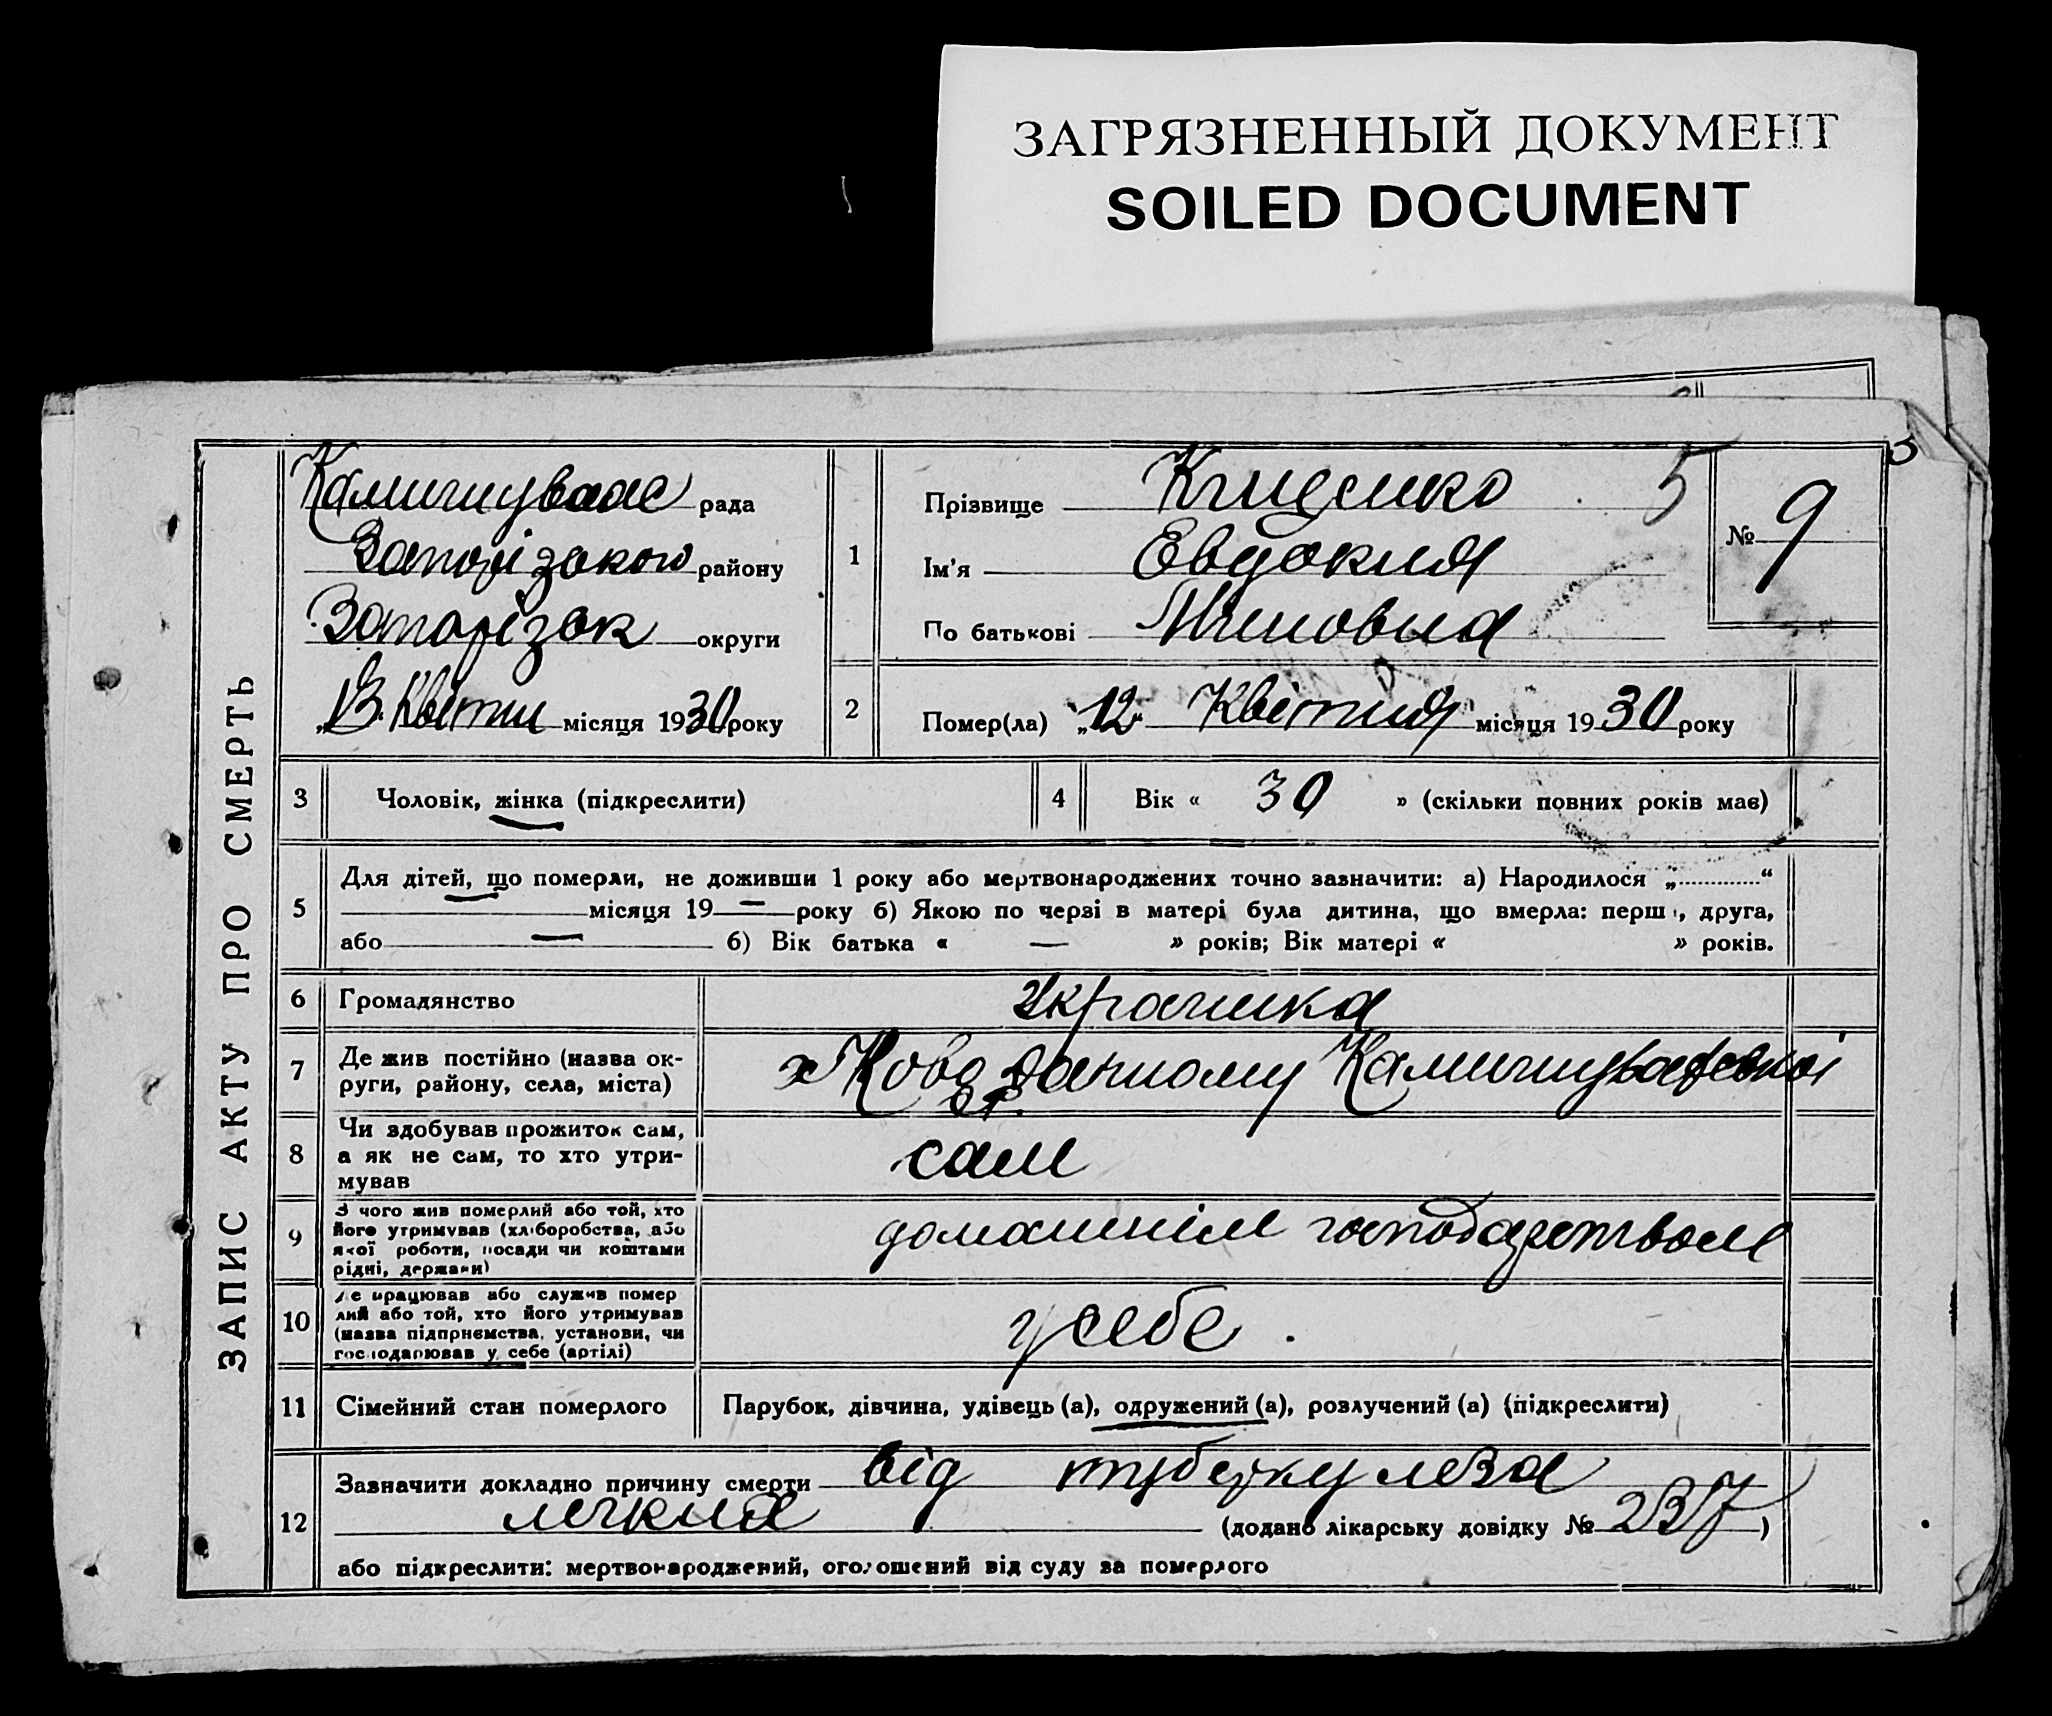 ЗАГРЯЗНЕННЫЙ ДОКУМЕНТ
SOILED DOCUMENT
ЗАПИС АКТУ ПРО СМЕРТЬ
рада
Запорізького району
Запорізьк округи
„13" Квітня місяця 1930 року
1
Прізвище 5
Ім'я Евдокия
По батькові
№ 9
3
2
Помер(ла) „12" Квітня місяця 1930 року
3 Чоловік, жінка (підкреслити)
4 Вік « 30 » (скільки повних років має)
5 Для дітей, що померли, не доживши 1 року або мертвонароджених точно зазначити: а) Народилося „ “
— місяця 19 — року б) Якою по черзі в матері була дитина, що вмерла: перш , друга,
або — б) Вік батька « — » років; Вік матері « » років.
6 Громадянство Украинка
7 Де жив постійно (назва ок-
руги, району, села, міста)
8 Чи здобував прожиток сам,
а як не сам, то хто утри-
мував
сам
9 З чого жив померлий або той, хто
його утримував (хліборобства, або
якої роботи, посади чи коштами
рідні, держави)
домашнім господарством
10 Де працював або служив помер
лий або той, хто його утримував
(назва підприємства, установи, чи
господарював у себе (артілі)
у себе.
11 Сімейний стан померлого Парубок, дівчина, удівець (а), одружений (а), розлучений (а) (підкреслити)
12 Зазначити докладно причину смерти від туберкулеза
(додано лікарську довідку № 237)
або підкреслити: мертвонароджений, оголошений від суду за померлого